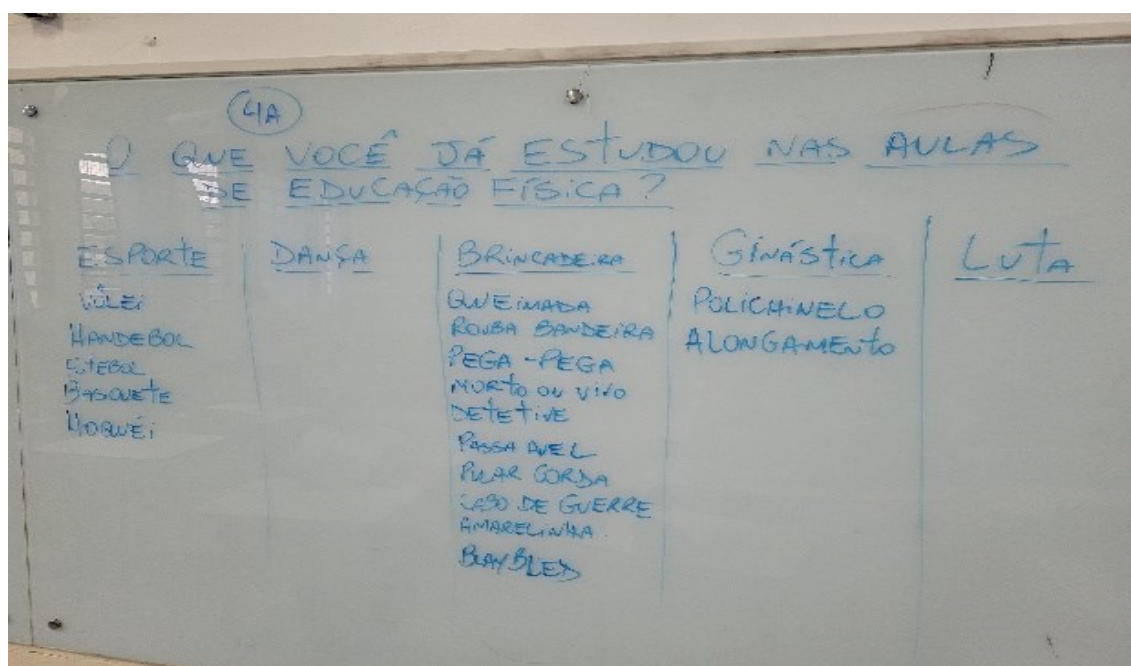 4A
O QUE VOCÊ JÁ ESTUDOU NAS AULAS
DE EDUCAÇÃO FÍSICA?
ESPORTE
VÔLEI
HANDEBOL
BASQUETE
HOQUÉI
DANÇA
BRINCADEIRA
QUEIMADA
ROUBA BANDEIRA
PEGA-PEGA
MORTO OU VIVO
DETETIVE
PASSA ANEL
PULAR CORDA
CABO DE GUERRE
AMARELINHA
BLAYBLED
GINÁSTICA
POLICHINELO
ALONGAMENTO
LUTA